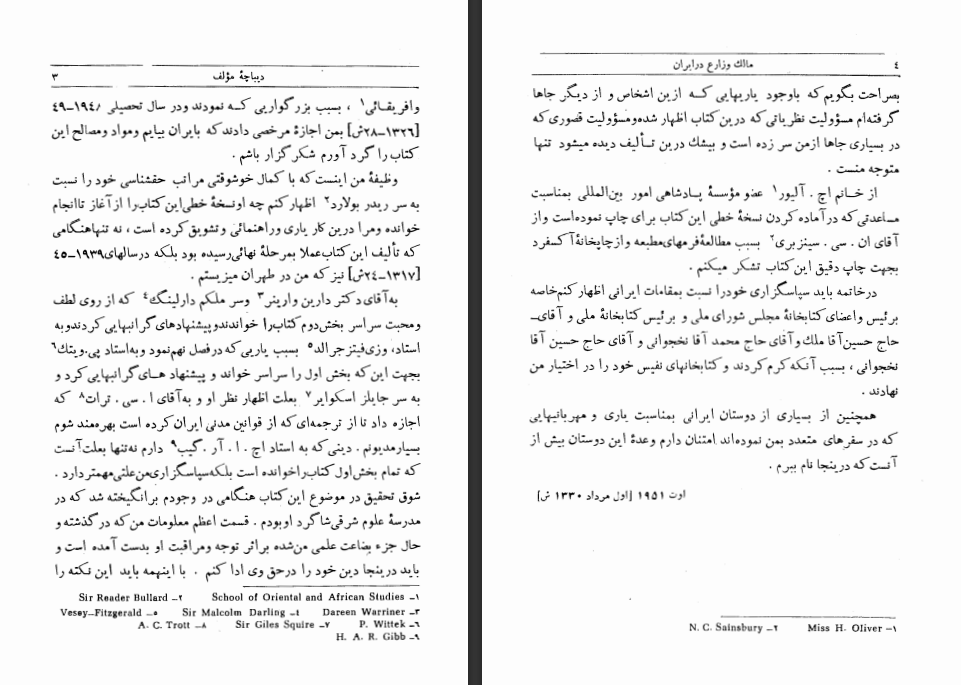 دیباچهٔ مؤلف ۳
وافریقائی۱ ، بسبب بزرگواریی کـه نمودند ودر سال تحصیلی ۱۹۴۸ـ۴۹
[۱۳۲۶ـ۲۸ش] بمن اجازهٔ مرخصی دادند که بایران بیایم ومواد ومصالح این
کتاب را گرد آورم شکر گزار باشم .
وظیفهٔ من اینست که با کمال خوشوقتی مراتب حقشناسی خود را نسبت
به سر ریدر بولارد۲ اظهار کنم چه اونسخهٔ خطی این کتاب را از آغاز تاانجام
خوانده ومرا درین کار یاری وراهنمائی وتشویق کرده است ، نه تنهاهنگامی
که تألیف این کتاب عملا بمرحلهٔ نهائی رسیده بود بلکه درسالهای ۱۹۳۹ـ۴۵
[۱۳۱۷ـ۲۴ش] نیز که من در طهران میزیستم .
به آقای دکتر دارین وارینر۳ وسر ملکم دارلینگ۴ که از روی لطف
ومحبت سراسر بخش دوم کتاب را خواندند وپیشنهادهای گرانبهایی کردند وبه
استاد، وزی فیتزجرالد۵ بسبب یاریی که در فصل نهم نمود وبه استاد پی. ویتك۶
بجهت این که بخش اول را سراسر خواند و پیشنهاد هـای گرانبهایی کرد و
به سر جایلز اسکوایر۷ بعلت اظهار نظر او و به آقای ا . سی . ترات۸ که
اجازه داد تا از ترجمه‌ای که از قوانین مدنی ایران کرده است بهره‌مند شوم
بسیار مدیونم . دینی که به استاد اچ . ا . آر . گیب۹ دارم نه تنها بعلت آنست
که تمام بخش اول کتاب را خوانده است بلکه سپاسگزاری من علتی مهمتر دارد .
شوق تحقیق در موضوع این کتاب هنگامی در وجودم برانگیخته شد که در
مدرسهٔ علوم شرقی شاگرد او بودم . قسمت اعظم معلومات من که در گذشته و
حال جزء بضاعت علمی من شده بر اثر توجه ومراقبت او بدست آمده است و
باید درینجا دین خود را در حق وی ادا کنم . با اینهمه باید این نکته را
۱ـ School of Oriental and African Studies ۲ـ Sir Reader Bullard
۳ـ Dareen Warriner ۴ـ Sir Malcolm Darling ۵ـ Vesey–Fitzgerald
۶ـ P. Wittek ۷ـ Sir Giles Squire ۸ـ A. C. Trott
۹ـ H. A. R. Gibb
۴ مالك وزارع در ایران
بصراحت بگویم که باوجود یاریهایی کـه ازین اشخاص و از دیگر جاها
گرفته‌ام مسؤولیت نظریاتی که درین کتاب اظهار شده ومسؤولیت قصوری که
در بسیاری جاها از من سر زده است و بیشك درین تـألیف دیده میشود تنها
متوجه منست .
از خـانم اچ . آلیور۱ عضو مؤسسهٔ پـادشاهی امور بین‌المللی بمناسبت
مساعدتی که در آماده کردن نسخهٔ خطی این کتاب برای چاپ نموده است واز
آقای ان . سی . سینزبری۲ بسبب مطالعهٔ فرمهای مطبعه واز چاپخانهٔ آکسفرد
بجهت چاپ دقیق این کتاب تشکر میکنم .
در خاتمه باید سپاسگزاری خود را نسبت بمقامات ایرانی اظهار کنم خاصه
برئیس واعضای کتابخانهٔ مجلس شورای ملی و برئیس کتابخانهٔ ملی و آقای‌ـ
حاج حسین آقا ملك وآقای حاج محمد آقا نخجوانی و آقای حاج حسین آقا
نخجوانی ، بسبب آنکه کرم کردند و کتابخانهای نفیس خود را در اختیار من
نهادند .
همچنین از بسیاری از دوستان ایرانی بمناسبت یاری و مهربانیهایی
که در سفرهای متعدد بمن نموده‌اند امتنان دارم وعدهٔ این دوستان بیش از
آنست که درینجا نام ببرم .
اوت ۱۹۵۱ [اول مرداد ۱۳۳۰ ش]
۱ـ Miss H. Oliver ۲ـ N. C. Sainsbury